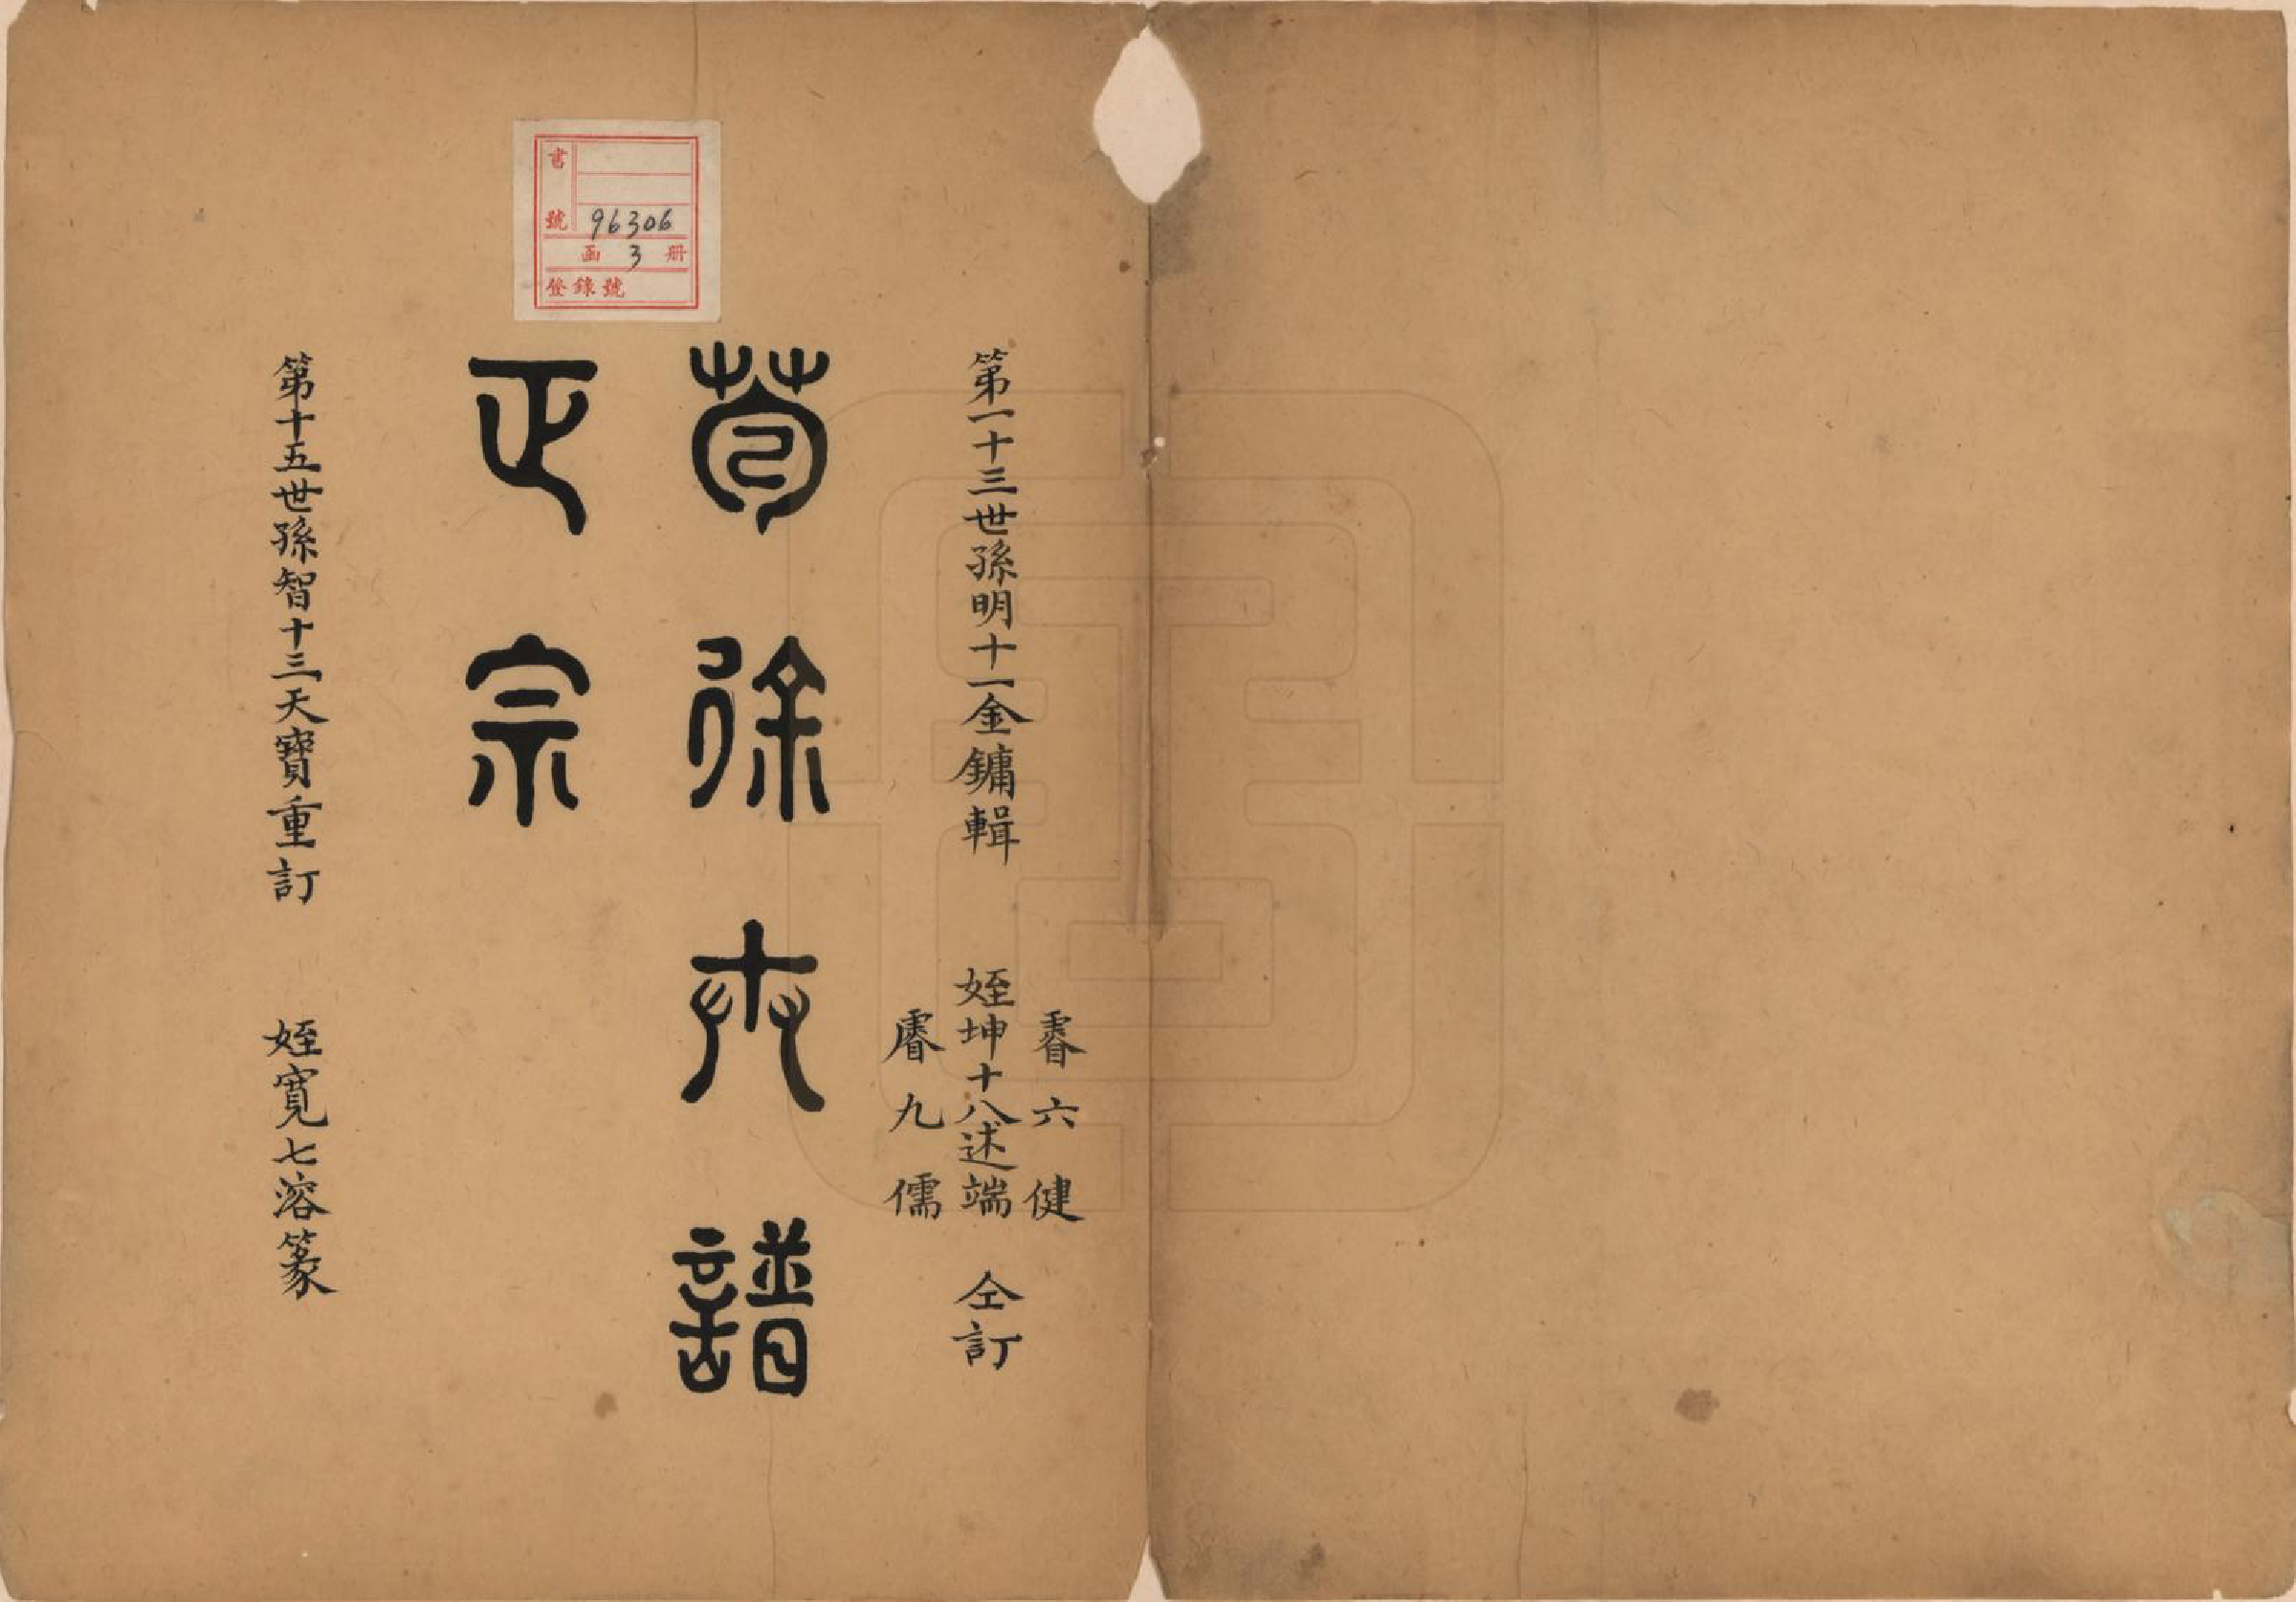 第一十三世孫明十一金鏞輯
睿六健
姪坤十八述端 仝訂
睿九儒
苞徐夾譜
正宗
第十五世孫智十三天寶重訂 姪寬七溶篆
書號 96306
函 3 册
登錄號